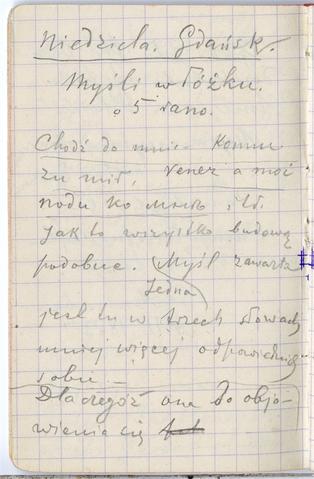 Niedziela. Gdańsk.
Myśli w łóżku.
o 5 rano.
Chodź do mnie – Komm
zu mir, venez a moi
подu ко мнѣ, itd.
jak to wszystko budową
podobne. Myśl zawarta
jedna
jest tu w trzech słowach
mniej więcej odpowiednich
sobie –
Dlaczegóż ona do objawienia
się